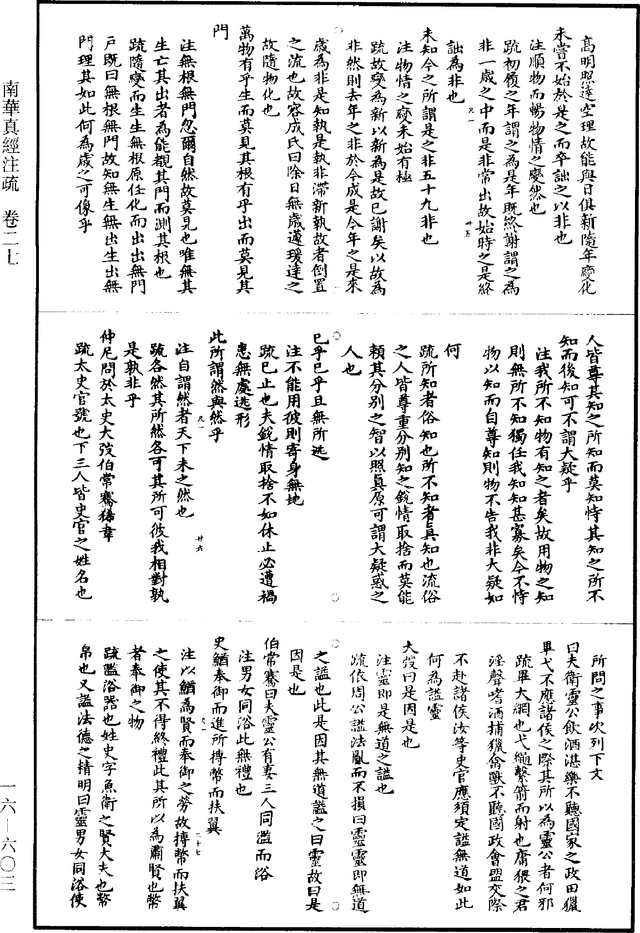 高明照達空理故能與日俱新隨年變化
未嘗不始於是之而卒詘之以非也
注順物而暢物情之變然也
疏初履之年謂之為是年既終謝謂之為
非一歲之中而是非常出故始時之是終
詘為非也
未知今之所謂是之非五十九非也
注物情之變未始有極
疏故變為新以新為是故已謝矣以故為
非然則去年之非於今成是今年之是來
歲為非是知執是執非滯新執故者倒置
之流也故容成氏曰除日無歲蘧瑗達之
故隨物化也
萬物有乎生而莫見其根有乎出而莫見其
門
注無根無門忽爾自然故莫見也唯無其
生亡其出者為能覩其門而測其根也
疏隨變而生生無根原任化而出出無門
戶既曰無根無門故知無生無出生出無
門理其如此何為歲之可像乎
人皆尊其知之所知而莫知恃其知之所不
知而後知可不謂大疑乎
注我所不知物有知之者矣故用物之知
則無所不知獨任我知知甚寡矣今不恃
物以知而自尊知則物不告我非大疑如
何
疏所知者俗知也所不知者真知也流俗
之人皆尊重分別知之銳情取捨而莫能
賴其分別之智以照真原可謂大疑惑之
人也
已乎已乎且無所逃
注不能用彼則寄身無地
疏已止也夫銳情取捨不如休止必遭禍
患無處逃形
此所謂然與然乎
注自謂然者天下未之然也
疏各然其所然各可其所可彼我相對孰
是孰非乎
仲尼問於太史大弢伯常騫狶韋
疏太史官號也下三人皆史官之姓名也
所問之事次列下文
曰夫衛靈公飲酒湛樂不聽國家之政田獵
畢弋不應諸侯之際其所以為靈公者何邪
疏畢大網也弋繩繫箭而射也庸猥之君
淫聲嗜酒捕獵禽獸不聽國政會盟交際
不赴諸侯汝等史官應須定謚無道如此
何為謚靈
大弢曰是因是也
注靈即是無道之謚也
疏依周公謚法亂而不損曰靈靈即無道
之謚也此是因其無道謚之曰靈故曰是
因是也
伯常騫曰夫靈公有妻三人同濫而浴
注男女同浴此無禮也
史鰌奉御而進所搏幣而扶翼
注以鰌為賢而奉御之勞故搏幣而扶翼
之使其不得終禮此其所以為肅賢也幣
者奉御之物
疏濫浴器也姓史字魚衛之賢大夫也幣
帛也又謚法德之精明曰靈男女同浴使
南華真經注疏 卷二七
一六—六〇三